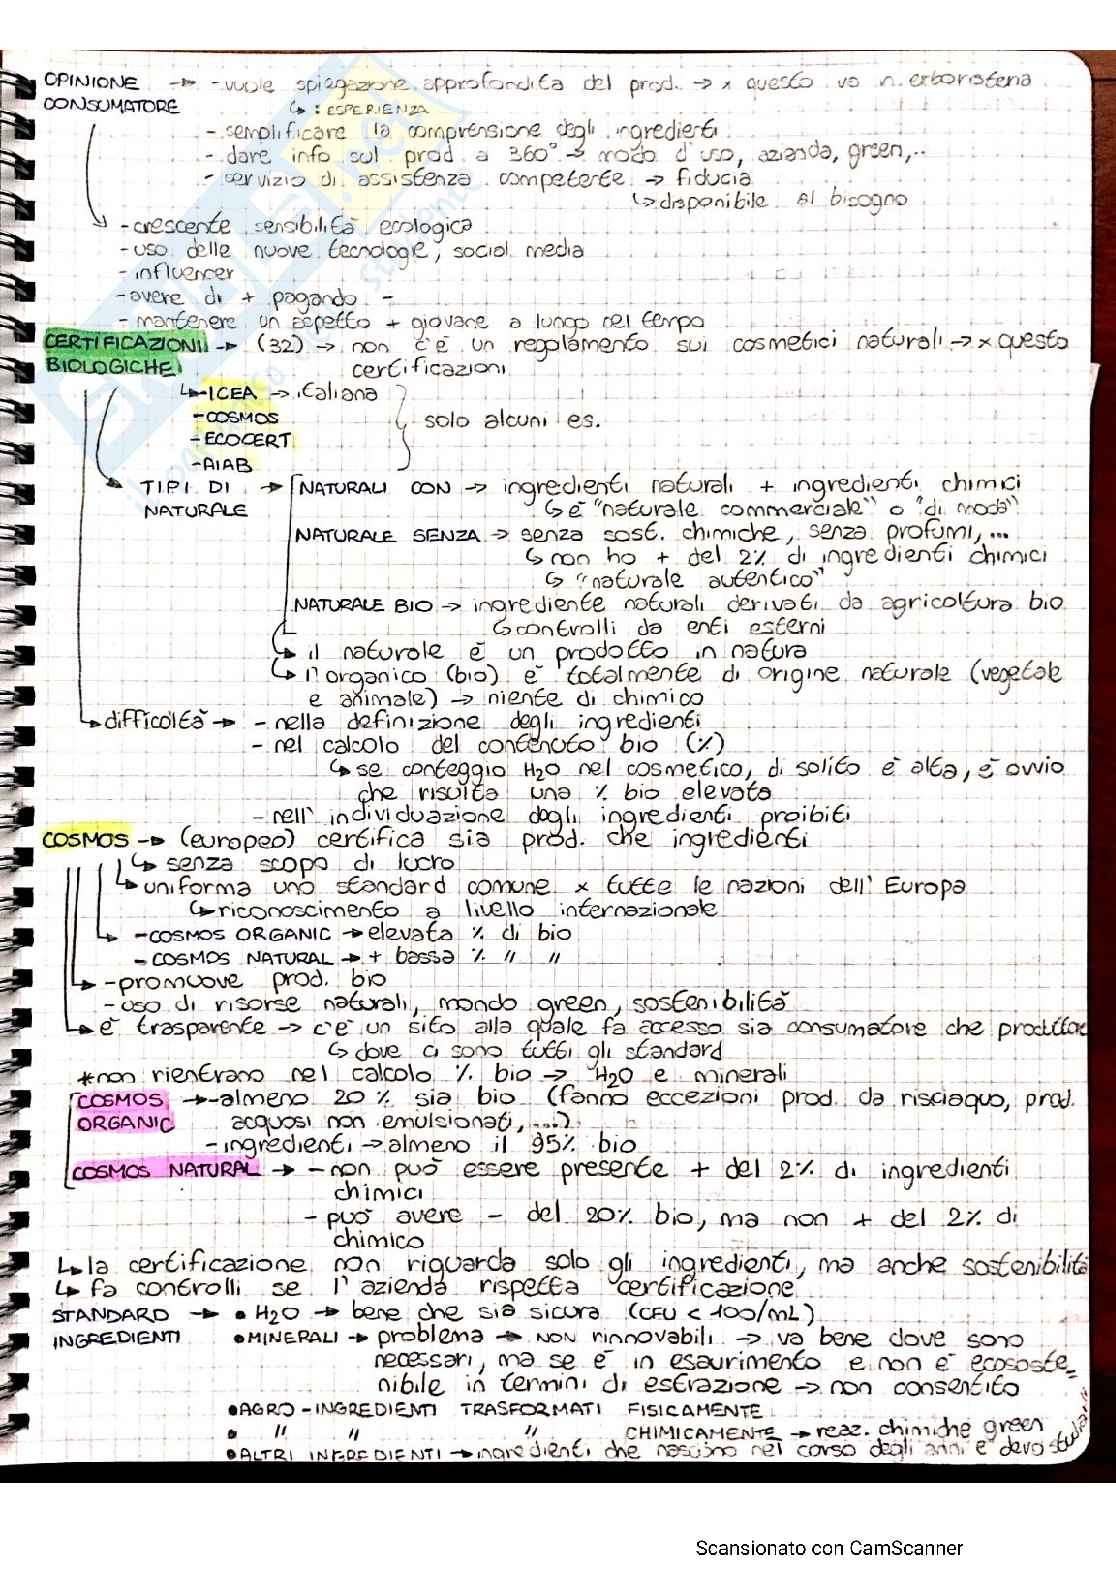 OPINIONE → - vuole spiegazione approfondita del prod. → x questo va n. erboristeria
CONSUMATORE ↳ : ESPERIENZA
- semplificare la comprensione degli ingredienti
- dare info sul prod a 360° → modo d'uso, azienda, green,..
- servizio di assistenza competente → fiducia
↳ disponibile al bisogno
- crescente sensibilità ecologica
- uso delle nuove tecnologie, social media
- influencer
- avere di + pagando -
- mantenere un aspetto + giovare a lungo nel tempo
CERTIFICAZIONI → (32) → non c'è un regolamento sui cosmetici naturali → x questo
BIOLOGICHE certificazioni
↳ - ICEA → italiana
- COSMOS solo alcuni es.
- ECOCERT
- AIAB
TIPI DI → NATURALI CON → ingredienti naturali + ingredienti chimici
NATURALE ↳ è "naturale commerciale" o "di moda"
NATURALE SENZA → senza sost. chimiche, senza profumi, ...
↳ non ho + del 2% di ingredienti chimici
↳ "naturale autentico"
NATURALE BIO → ingrediente naturali derivati da agricoltura bio
↳ controlli da enti esterni
↳ il naturale è un prodotto in natura
↳ l'organico (bio) è totalmente di origine naturale (vegetale
e animale) → niente di chimico
↳ difficoltà → - nella definizione degli ingredienti
- nel calcolo del contenuto bio (%)
↳ se conteggio H2O nel cosmetico, di solito è alta, è ovvio
che risulta una % bio elevata
- nell'individuazione degli ingredienti proibiti
COSMOS → (europeo) certifica sia prod. che ingredienti
↳ senza scopo di lucro
↳ uniforma uno standard comune x tutte le nazioni dell'Europa
↳ riconoscimento a livello internazionale
↳ - COSMOS ORGANIC → elevata % di bio
- COSMOS NATURAL → + bassa % " "
↳ - promuove prod. bio
- uso di risorse naturali, mondo green, sostenibilità
↳ è trasparente → c'è un sito alla quale fa accesso sia consumatore che produttore
↳ dove ci sono tutti gli standard
*non rientrano nel calcolo % bio → H2O e minerali
COSMOS → - almeno 20% sia bio (fanno eccezioni prod. da risciaquo, prod.
ORGANIC acquosi non emulsionati, ...)
- ingredienti → almeno il 95% bio
COSMOS NATURAL → - non può essere presente + del 2% di ingredienti
chimici
- può avere - del 20% bio, ma non + del 2% di
chimico
↳ la certificazione non riguarda solo gli ingredienti, ma anche sostenibilità
↳ fa controlli se l'azienda rispetta certificazione
STANDARD → • H2O → bene che sia sicura (CFU < 100/mL)
INGREDIENTI • MINERALI → problema → NON rinnovabili → va bene dove sono
necessari, ma se è in esaurimento e non è ecososte_
nibile in termini di estrazione → non consentito
• AGRO-INGREDIENTI TRASFORMATI FISICAMENTE
• " " " CHIMICAMENTE → reaz. chimiche green
• ALTRI INGREDIENTI → ingredienti che nascono nel corso degli anni e devo studiare
Scansionato con CamScanner